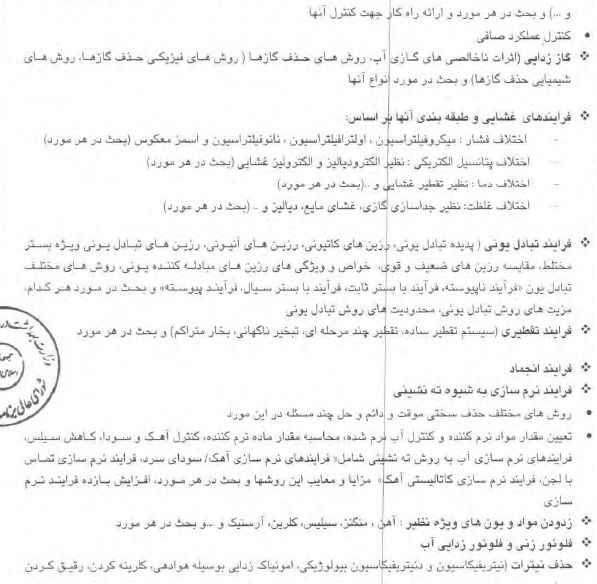 و ...) و بحث در هر مورد و ارائه راه کار جهت کنترل آنها
• کنترل عملکرد صافی
❖ گاز زدایی (اثرات ناخالصی های گازی آب، روش های حذف گازها ( روش های فیزیکی حذف گازها، روش های
شیمیایی حذف گازها) و بحث در مورد انواع آنها
❖ فرایندهای غشایی و طبقه بندی آنها بر اساس:
- اختلاف فشار : میکروفیلتراسیون ، اولترافیلتراسیون ، نانوفیلتراسیون و اسمز معکوس (بحث در هر مورد)
- اختلاف پتانسیل الکتریکی : نظیر الکترودیالیز و الکترولیز غشایی (بحث در هر مورد)
- اختلاف دما : نظیر تقطیر غشایی و ..(بحث در هر مورد)
- اختلاف غلظت: نظیر جداسازی گازی، غشای مایع، دیالیز و .. (بحث در هر مورد)
❖ فرایند تبادل یونی ( پدیده تبادل یونی، رزین های کاتیونی، رزین های آنیونی، رزین های تبادل یونی ویژه بستر
مختلط، مقایسه رزین های ضعیف و قوی، خواص و ویژگی های رزین های مبادله کننده یونی، روش های مختلف
تبادل یون «فرآیند ناپیوسته، فرآیند با بستر ثابت، فرآیند با بستر سیال، فرآیند پیوسته» و بحث در مورد هر کدام،
مزیت های روش تبادل یونی، محدودیت های روش تبادل یونی
❖ فرایند تقطیری (سیستم تقطیر ساده، تقطیر چند مرحله ای، تبخیر ناگهانی، بخار متراکم) و بحث در هر مورد
❖ فرایند انجماد
❖ فرایند نرم سازی به شیوه ته نشینی
• روش های مختلف حذف سختی موقت و دائم و حل چند مسئله در این مورد
• تعیین مقدار مواد نرم کننده و کنترل آب نرم شده، محاسبه مقدار ماده نرم کننده، کنترل آهک و سودا، کاهش سیلیس،
فرایندهای نرم سازی آب به روش ته نشینی شامل« فرایندهای نرم سازی آهک/ سودای سرد، فرایند نرم سازی تماس
با لجن، فرایند نرم سازی کاتالیستی آهک» مزایا و معایب این روشها و بحث در هر مورد، افزایش بازده فرایند نرم
سازی
❖ زدودن مواد و یون های ویژه نظیر : آهن ، منگنز، سیلیس، کلرین، آرسنیک و ...و بحث در هر مورد
❖ فلوئور زنی و فلوئور زدایی آب
❖ حذف نیترات (نیتریفیکاسیون و دنیتریفیکاسیون بیولوژیکی، امونیاک زدایی بوسیله هوادهی، کلرینه کردن، رقیق کردن